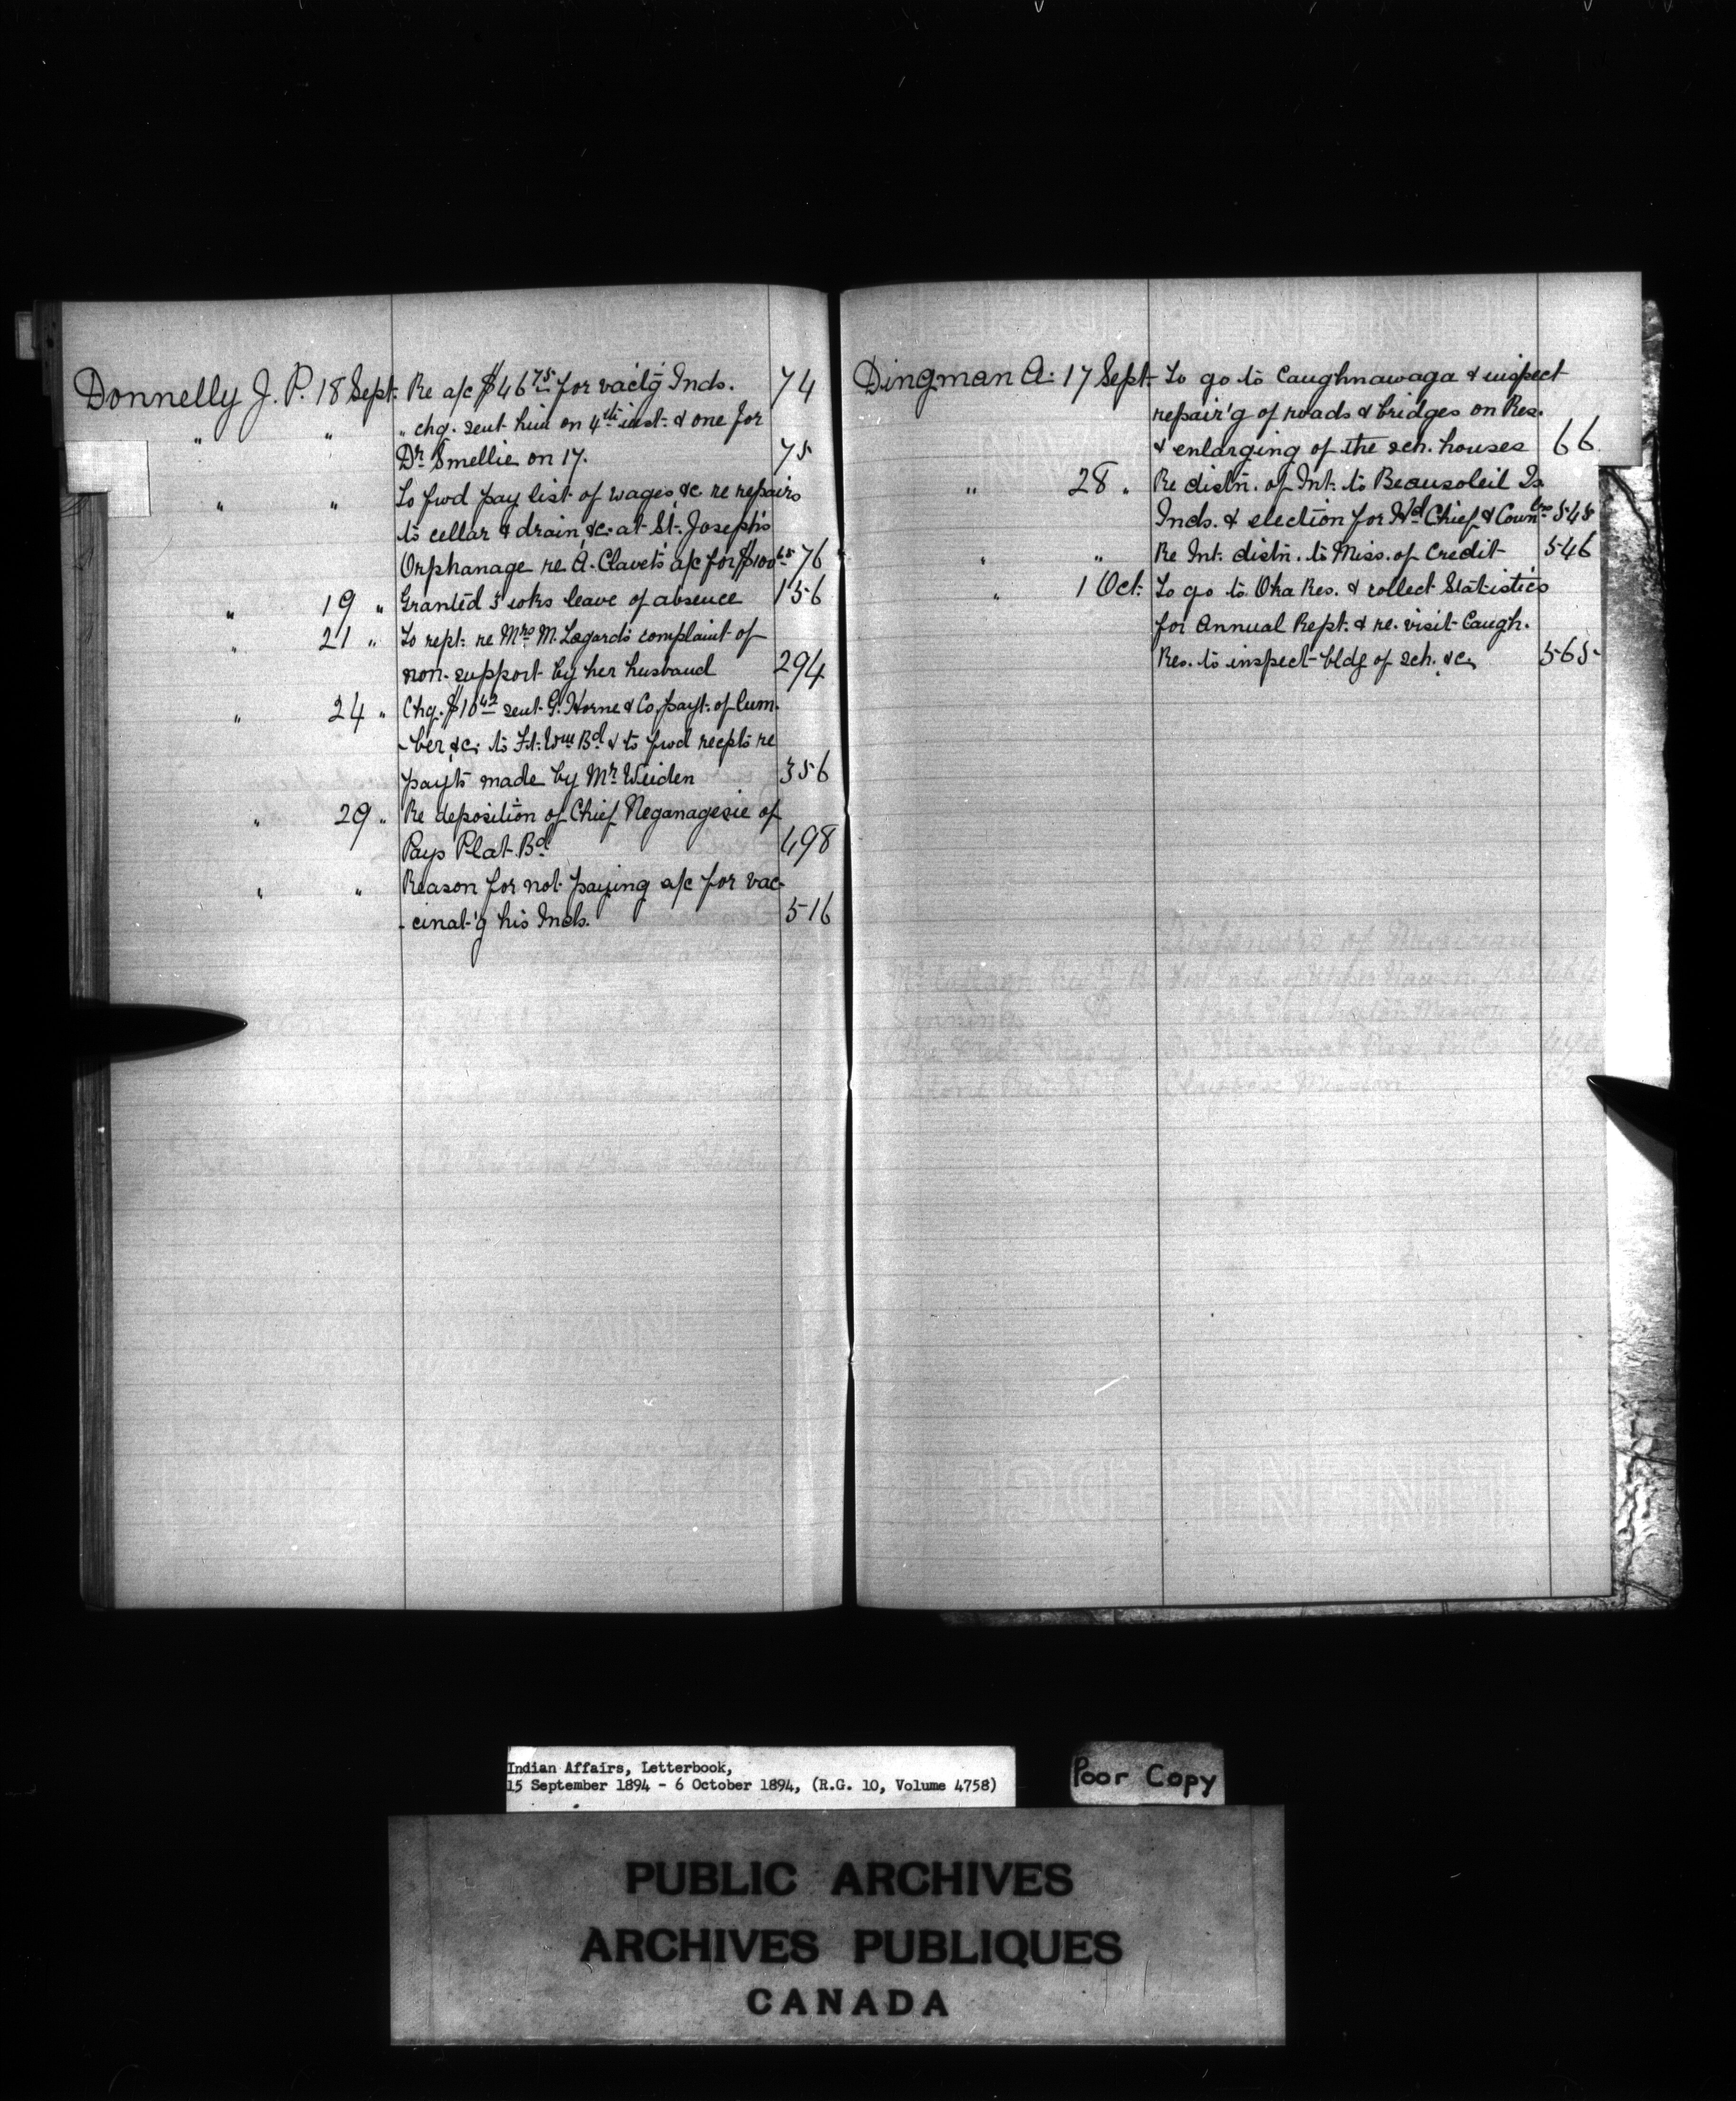 Donnelly J. P. 18 Sept. Re a/c $46 75 for vac'tg Inds. 74
" " " chq. sent him on 4th inst. & one for
Dr Smellie on 17. 75
" " To fwd pay list of wages, &c. re repairs
to cellar & drain, &c. at St. Joseph's
Orphanage re A. Clavet's a/c for $100 65 76
" 19 " Granted 3 wks leave of absence 156
" 21 " To rept. re Mrs M. Legarde's complaint of
non-support by her husband 294
" 24 " Chq. $10 42 sent G. Horne & Co. payt. of lum-
-ber, &c. to Ft. Wm Bd. & to fwd recpts re
payts made by Mr Weiden 356
" 29 " Re deposition of Chief Neganagesie of
Pays Plat Bd. 498
" " Reason for not paying a/c for vac-
-cinat'g his Inds. 516
Dingman A. 17 Sept. To go to Caughnawaga & inspect
repair'g of roads & bridges on Res.
& enlarging of the sch. houses 66
" 28 " Re distn. of Int. to Beausoleil Is.
Inds. & election for Hd Chief & Counlrs 545
" " Re Int. distn. to Miss. of Credit 546
" 1 Oct. To go to Oka Res. & collect Statistics
for Annual Rept. & re-visit Caugh.
Res. to inspect bldg of sch. &c. 565
Indian Affairs, Letterbook,
15 September 1894 - 6 October 1894, (R.G. 10, Volume 4758)
Poor Copy
PUBLIC ARCHIVES
ARCHIVES PUBLIQUES
CANADA